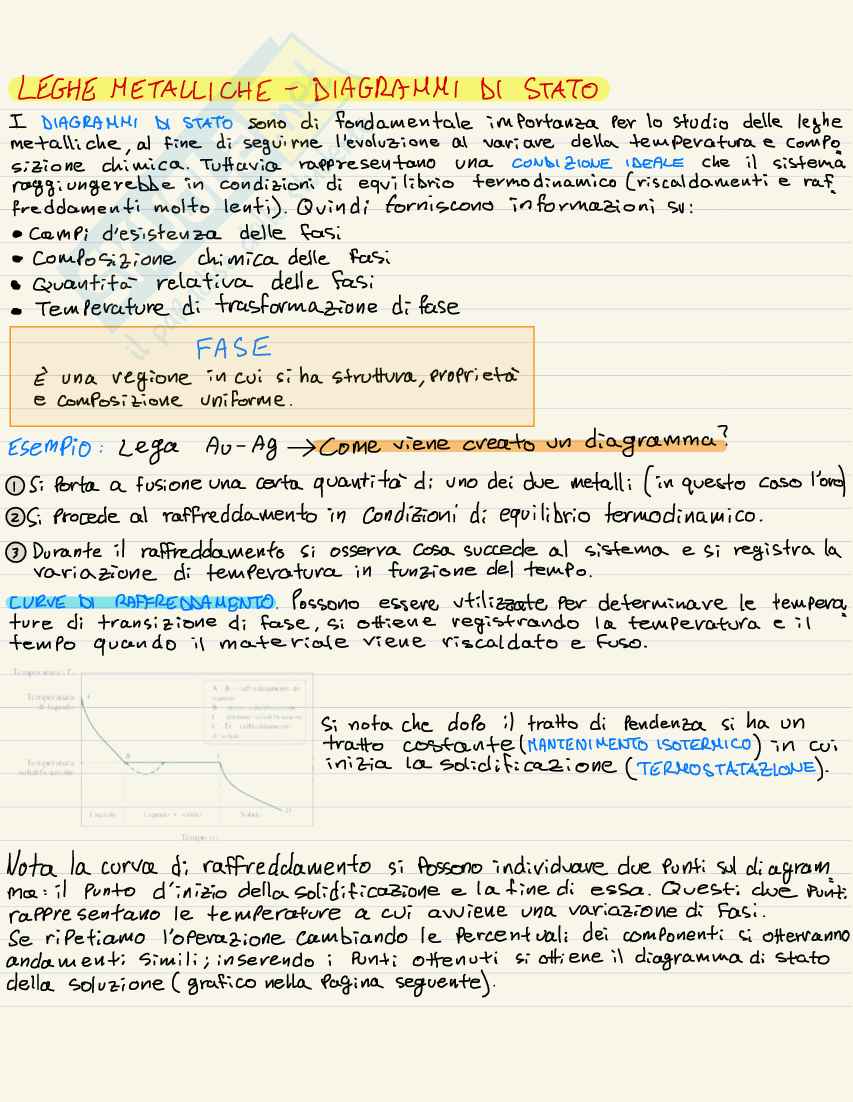 LEGHE METALLICHE - DIAGRAMMI DI STATO
I DIAGRAMMI DI STATO sono di fondamentale importanza per lo studio delle leghe
metalliche, al fine di seguirne l'evoluzione al variare della temperatura e compo
sizione chimica. Tuttavia rappresentano una CONDIZIONE IDEALE che il sistema
raggiungerebbe in condizioni di equilibrio termodinamico (riscaldamenti e raf
freddamenti molto lenti). Quindi forniscono informazioni su:
• Campi d'esistenza delle fasi
• Composizione chimica delle fasi
• Quantità relativa delle fasi
• Temperature di trasformazione di fase
FASE
È una regione in cui si ha struttura, proprietà
e composizione uniforme.
ESEMPIO: Lega Au-Ag → Come viene creato un diagramma?
① Si porta a fusione una certa quantità di uno dei due metalli (in questo caso l'oro)
② Si procede al raffreddamento in condizioni di equilibrio termodinamico.
③ Durante il raffreddamento si osserva cosa succede al sistema e si registra la
variazione di temperatura in funzione del tempo.
CURVE DI RAFFREDDAMENTO. Possono essere utilizzate per determinare le tempera
ture di transizione di fase, si ottiene registrando la temperatura e il
tempo quando il materiale viene riscaldato e fuso.
Temperatura
Temperatura
di liquido
A
B
Temperatura
solidificazione
D
Liquido
Liquido + solido
Solido
Tempo
Si nota che dopo il tratto di pendenza si ha un
tratto costante (MANTENIMENTO ISOTERMICO) in cui
inizia la solidificazione (TERMOSTATAZIONE).
Nota la curva di raffreddamento si possono individuare due punti sul diagram
ma: il punto d'inizio della solidificazione e la fine di essa. Questi due punti
rappresentano le temperature a cui avviene una variazione di fasi.
Se ripetiamo l'operazione cambiando le percentuali dei componenti si otterranno
andamenti simili; inserendo i punti ottenuti si ottiene il diagramma di stato
della soluzione (grafico nella pagina seguente).